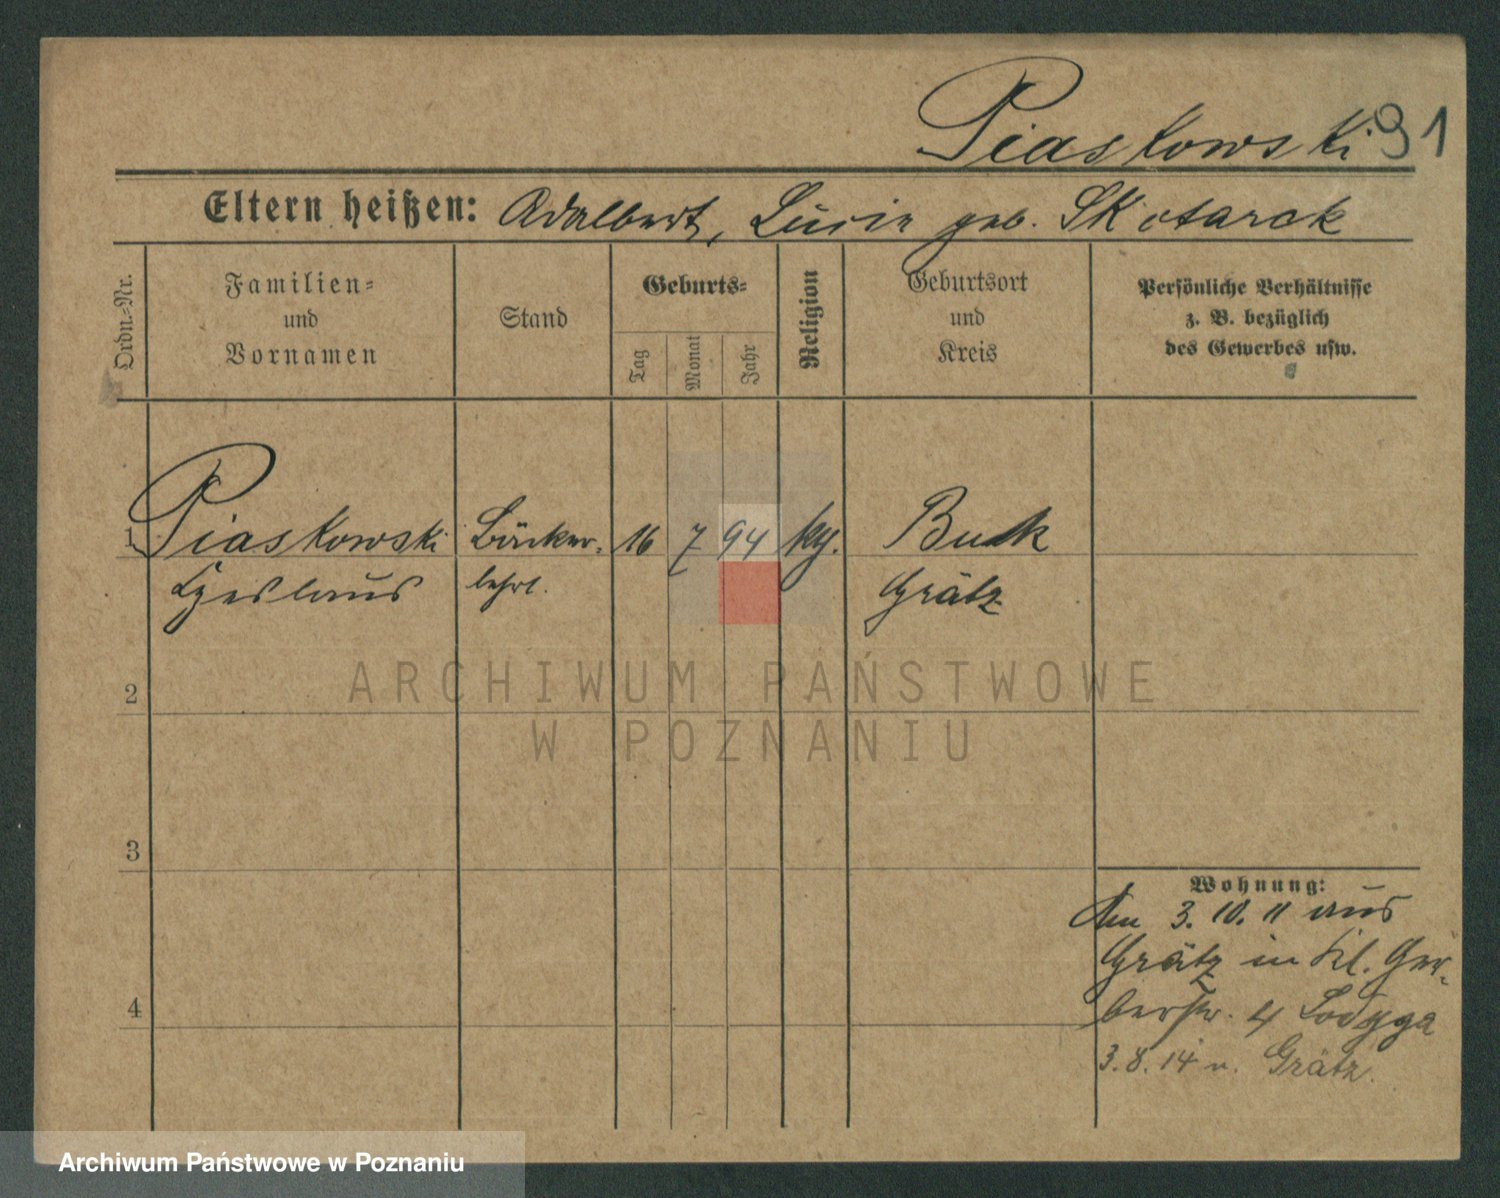 Piaskowski 91
Eltern heißen: Adalbert, Lucie geb. Skotarck
Ordn.-Nr.
Familien- und Vornamen
Stand
Geburts-
Tag
Monat
Jahr
Religion
Geburtsort und Kreis
Persönliche Verhältnisse
z. B. bezüglich
des Gewerbes usw.
1 Piaskowski Bäcker- 16 7 94 kg. Buk
Czeslaus lehrl. Grätz
2
ARCHIWUM PAŃSTWOWE
W POZNANIU
3
Wohnung:
Am 3. 10. 11 aus
Grätz in Kl. Ger-
4 berstr. 4
3. 8. 14 n. Grätz.
Archiwum Państwowe w Poznaniu